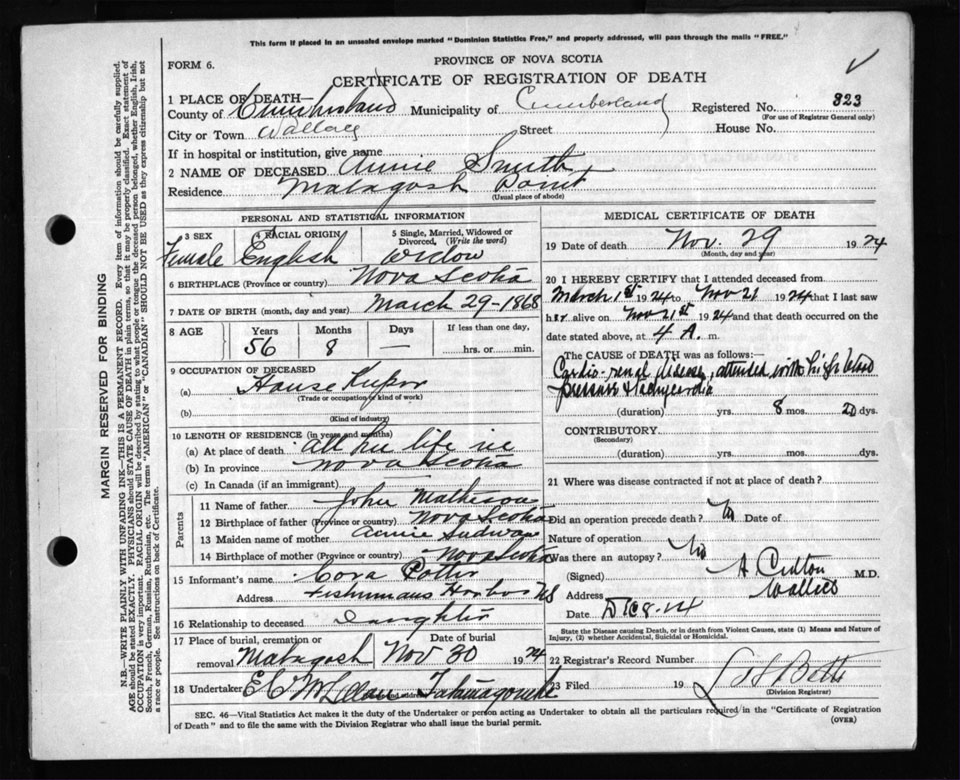 This form if placed in an unsealed envelope marked "Dominion Statistics Free," and properly addressed, will pass through the mails "FREE."
FORM 6.
PROVINCE OF NOVA SCOTIA
CERTIFICATE OF REGISTRATION OF DEATH
1 PLACE OF DEATH—
County of Cumberland Municipality of Cumberland Registered No. 323
(For use of Registrar General only)
City or Town Wallace Street House No.
If in hospital or institution, give name
2 NAME OF DECEASED Annie Smith
Residence Malagash Point
(Usual place of abode)
PERSONAL AND STATISTICAL INFORMATION
3 SEX 4 RACIAL ORIGIN 5 Single, Married, Widowed or Divorced, (Write the word)
Female English Widow
6 BIRTHPLACE (Province or country) Nova Scotia
7 DATE OF BIRTH (month, day and year) March 29-1868
8 AGE Years Months Days If less than one day,
56 8 — hrs. or min.
9 OCCUPATION OF DECEASED
(a) House Keeper
(Trade or occupation or kind of work)
(b)
(Kind of industry)
10 LENGTH OF RESIDENCE (in years and months)
(a) At place of death all her life in
(b) In province Nova Scotia
(c) In Canada (if an immigrant)
Parents
11 Name of father John Matheson
12 Birthplace of father (Province or country) Nova Scotia
13 Maiden name of mother Annie
14 Birthplace of mother (Province or country) Nova Scotia
15 Informant's name Cora Potter
Address Fishermans Harbor NS
16 Relationship to deceased Daughter
17 Place of burial, cremation or removal Malagash Date of burial Nov 30 1924
18 Undertaker E C McLellan Tatamagouche
MEDICAL CERTIFICATE OF DEATH
19 Date of death Nov. 29 1924
(Month, day and year)
20 I HEREBY CERTIFY that I attended deceased from
March 1st 1924 to Nov 21 1924 that I last saw
her alive on Nov 21st 1924 and that death occurred on the
date stated above, at 4 A. m.
The CAUSE OF DEATH was as follows:
Cardio-renal disease, attended with high blood
pressure & tachycardia
(duration) yrs. 8 mos. 20 dys.
CONTRIBUTORY
(Secondary)
(duration) yrs. mos. dys.
21 Where was disease contracted if not at place of death?
Did an operation precede death? No Date of
Nature of operation
Was there an autopsy? No
(Signed) M.D.
Address Wallace
Date Dec 8-24
State the Disease causing Death, or in death from Violent Causes, state (1) Means and Nature of
Injury, (2) whether Accidental, Suicidal or Homicidal.
22 Registrar's Record Number
23 Filed 19
(Division Registrar)
SEC. 46—Vital Statistics Act makes it the duty of the Undertaker or person acting as Undertaker to obtain all the particulars required in the "Certificate of Registration
of Death" and to file the same with the Division Registrar who shall issue the burial permit. (OVER)
MARGIN RESERVED FOR BINDING
N.B.—WRITE PLAINLY WITH UNFADING INK—THIS IS A PERMANENT RECORD. Every item of information should be carefully supplied.
AGE should be stated EXACTLY. PHYSICIANS should STATE CAUSE OF DEATH in plain terms, so that it may be properly classified. Exact statement of
OCCUPATION is very important. RACIAL ORIGIN will be described by stating to what people or tongue the deceased person belonged, whether English, Irish,
Scotch, French, German, Russian, Ruthenian, etc. The terms "AMERICAN" or "CANADIAN" SHOULD NOT BE USED as they express citizenship but not
a race or people. See instructions on back of Certificate.